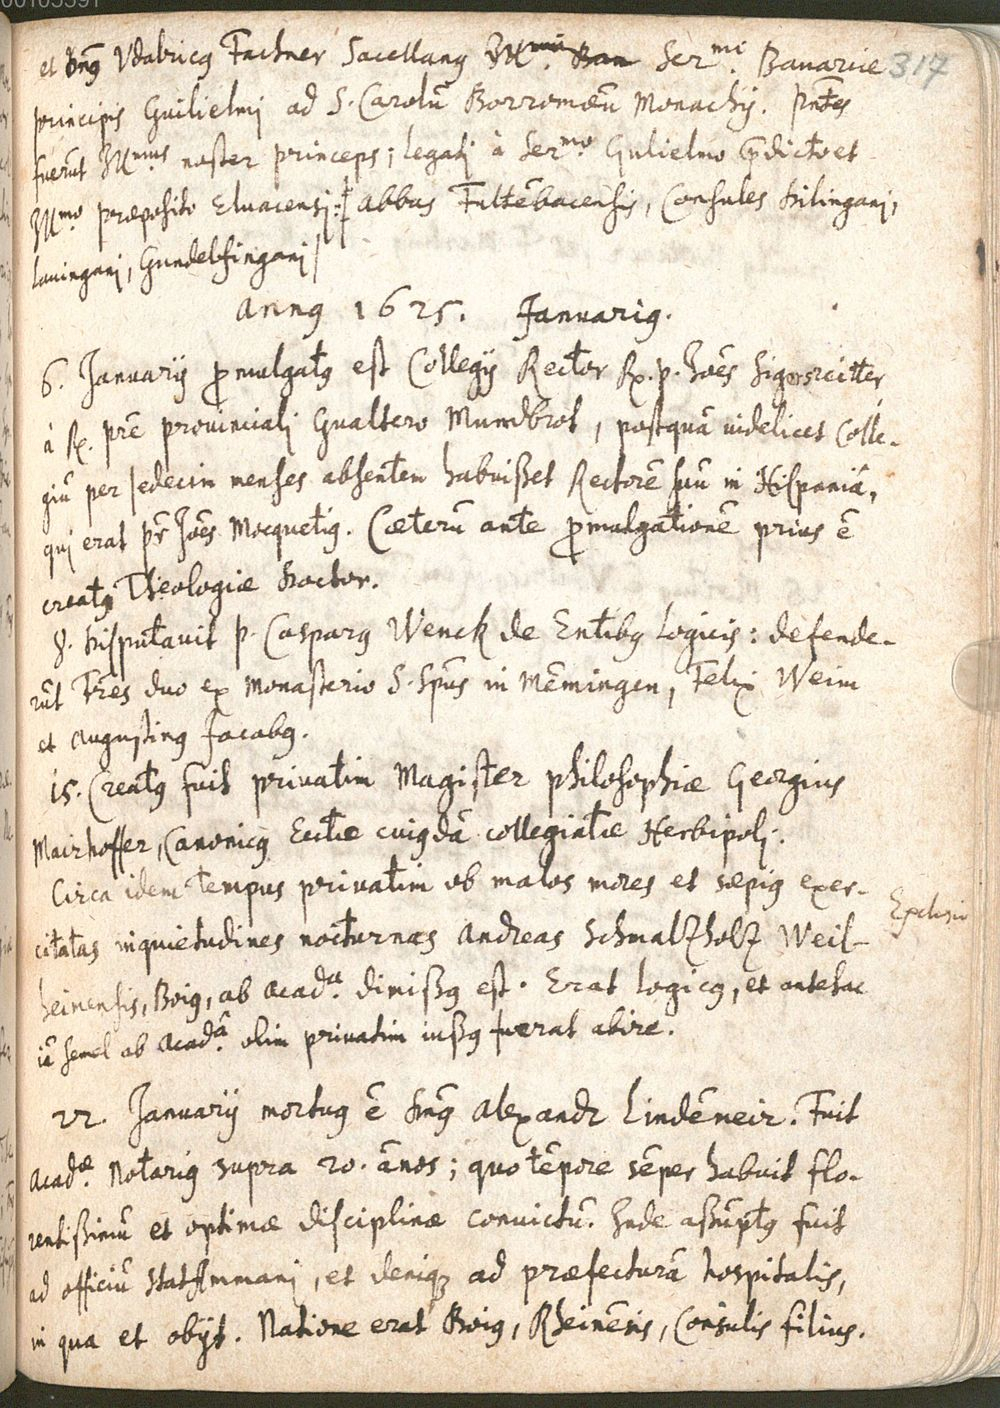 et Dn̄9 Vdabric9 Fachner Sacellan9 Ill.mi Bau Ser.mi Bauariae 317
principis Guilielmj ad S. Carolū Borromoeū Monachij. Pn̄tes
fuerūt Ill.mus noster princeps; legatj à Ser.mo Gulielmo p̄dicto et
Ill.mo præposito Eluacensj: abbas Fultēbacensis, Consules Dilinganj,
Lauinganj, Gundelfinganj
Ann9 1625. Januari9.
6. Januarij promulgat9 est Collegij Rector R. p. Joēs Sigersreitter
à R. prē prouincialj Gualtero Mundbrot, postquā uidelicet Colle-
giū per sedecim menses absentem habuißet Rectorē suū in Hispaniā,
quj erat pr̄ Joēs Mocqueti9. Cæterū ante promulgationē prius ē
creat9 Theologiæ Doctor.
8. Disputauit p. Caspar9 Wenck de Entib9 Logicis: defende-
rūt Frēs duo ex monasterio S. Spūs in Mēmingen, Felix Weim
et Augustin9 Jacob9.
15. Creat9 fuit priuatim Magister philosophiæ Georgius
Mairhoffer, Canonic9 Eccliæ cui9dā collegiatæ Herbipolj.
Circa idem tempus priuatim ob malos mores et sæpi9 exer-
citatas inquietudines nocturnas Andreas Schmaltzholtz Weil-
heimensis, Boi9, ab Acad.a dimiß9 est. Erat Logic9, et antehac
iā semel ab Acad.â olim priuatim iuß9 fuerat abire.
Exclusio
22. Januarij mortu9 ē Dn̄9 Alexandr Lindēmeir. Fuit
Acad.æ Notari9 supra 20. ānos; quo tēpore sēper habuit flo-
rentißimū et optimæ disciplinæ conuictū. Inde aßūpt9 fuit
ad officiū StatAmmanj, et deniq3 ad præfecturā hospitalis,
in qua et obijt. Natione erat Boi9, Rheinēsis, Consulis filius.